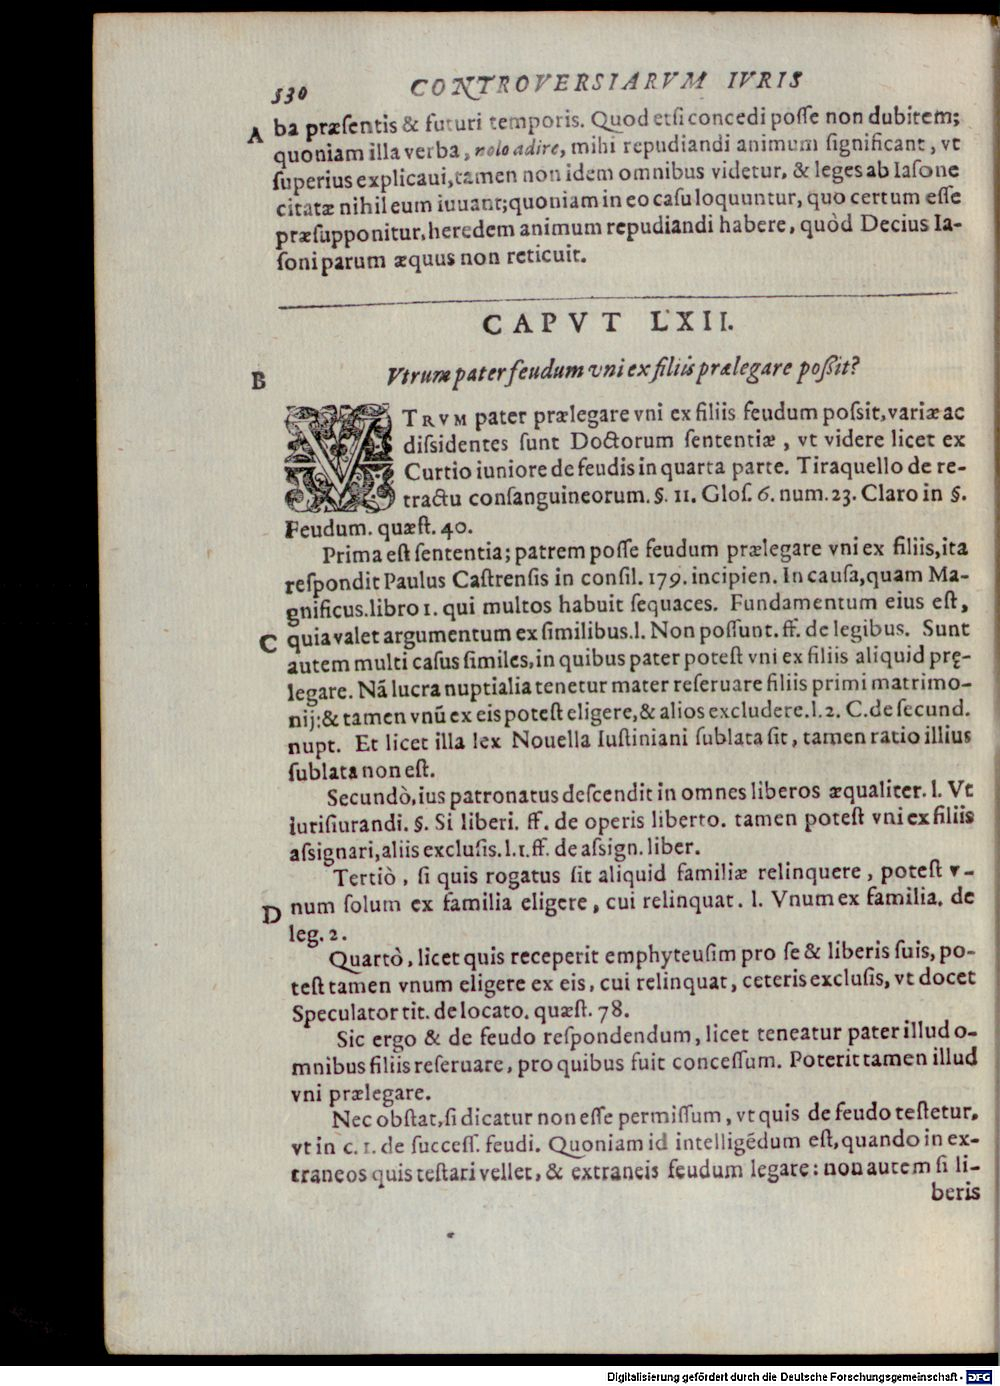 530 CONTROVERSIARVM IVRIS
A ba præsentis & futuri temporis. Quod etsi concedi posse non dubitem;
quoniam illa verba, nolo adire, mihi repudiandi animum significant, vt
superius explicaui, tamen non idem omnibus videtur, & leges ab Iasone
citatæ nihil eum iuuant; quoniam in eo casu loquuntur, quo certum esse
præsupponitur, heredem animum repudiandi habere, quòd Decius Ia-
soni parum æquus non reticuit.
CAPVT LXII.
B Vtrum pater feudum vni ex filiis prælegare possit?
VTRVM pater prælegare vni ex filiis feudum possit, variæ ac
dissidentes sunt Doctorum sententiæ, vt videre licet ex
Curtio iuniore de feudis in quarta parte. Tiraquello de re-
tractu consanguineorum. §. 11. Glos. 6. num. 23. Claro in §.
Feudum. quæst. 40.
Prima est sententia; patrem posse feudum prælegare vni ex filiis, ita
respondit Paulus Castrensis in consil. 179. incipien. In causa, quam Ma-
gnificus. libro 1. qui multos habuit sequaces. Fundamentum eius est,
C quia valet argumentum ex similibus. l. Non possunt. ff. de legibus. Sunt
autem multi casus similes, in quibus pater potest vni ex filiis aliquid prę-
legare. Nā lucra nuptialia tenetur mater reseruare filiis primi matrimo-
nij: & tamen vnū ex eis potest eligere, & alios excludere. l. 2. C. de secund.
nupt. Et licet illa lex Nouella Iustiniani sublata sit, tamen ratio illius
sublata non est.
Secundò, ius patronatus descendit in omnes liberos æqualiter. l. Vt
iurisiurandi. §. Si liberi. ff. de operis liberto. tamen potest vni ex filiis
assignari, aliis exclusis. l. 1. ff. de assign. liber.
Tertiò, si quis rogatus sit aliquid familiæ relinquere, potest v-
D num solum ex familia eligere, cui relinquat. l. Vnum ex familia. de
leg. 2.
Quartò, licet quis receperit emphyteusim pro se & liberis suis, po-
test tamen vnum eligere ex eis, cui relinquat, ceteris exclusis, vt docet
Speculator tit. de locato. quæst. 78.
Sic ergo & de feudo respondendum, licet teneatur pater illud o-
mnibus filiis reseruare, pro quibus fuit concessum. Poterit tamen illud
vni prælegare.
Nec obstat, si dicatur non esse permissum, vt quis de feudo testetur,
vt in c. 1. de success. feudi. Quoniam id intelligēdum est, quando in ex-
traneos quis testari vellet, & extraneis feudum legare: non autem si li-
beris
Digitalisierung gefördert durch die Deutsche Forschungsgemeinschaft - DFG